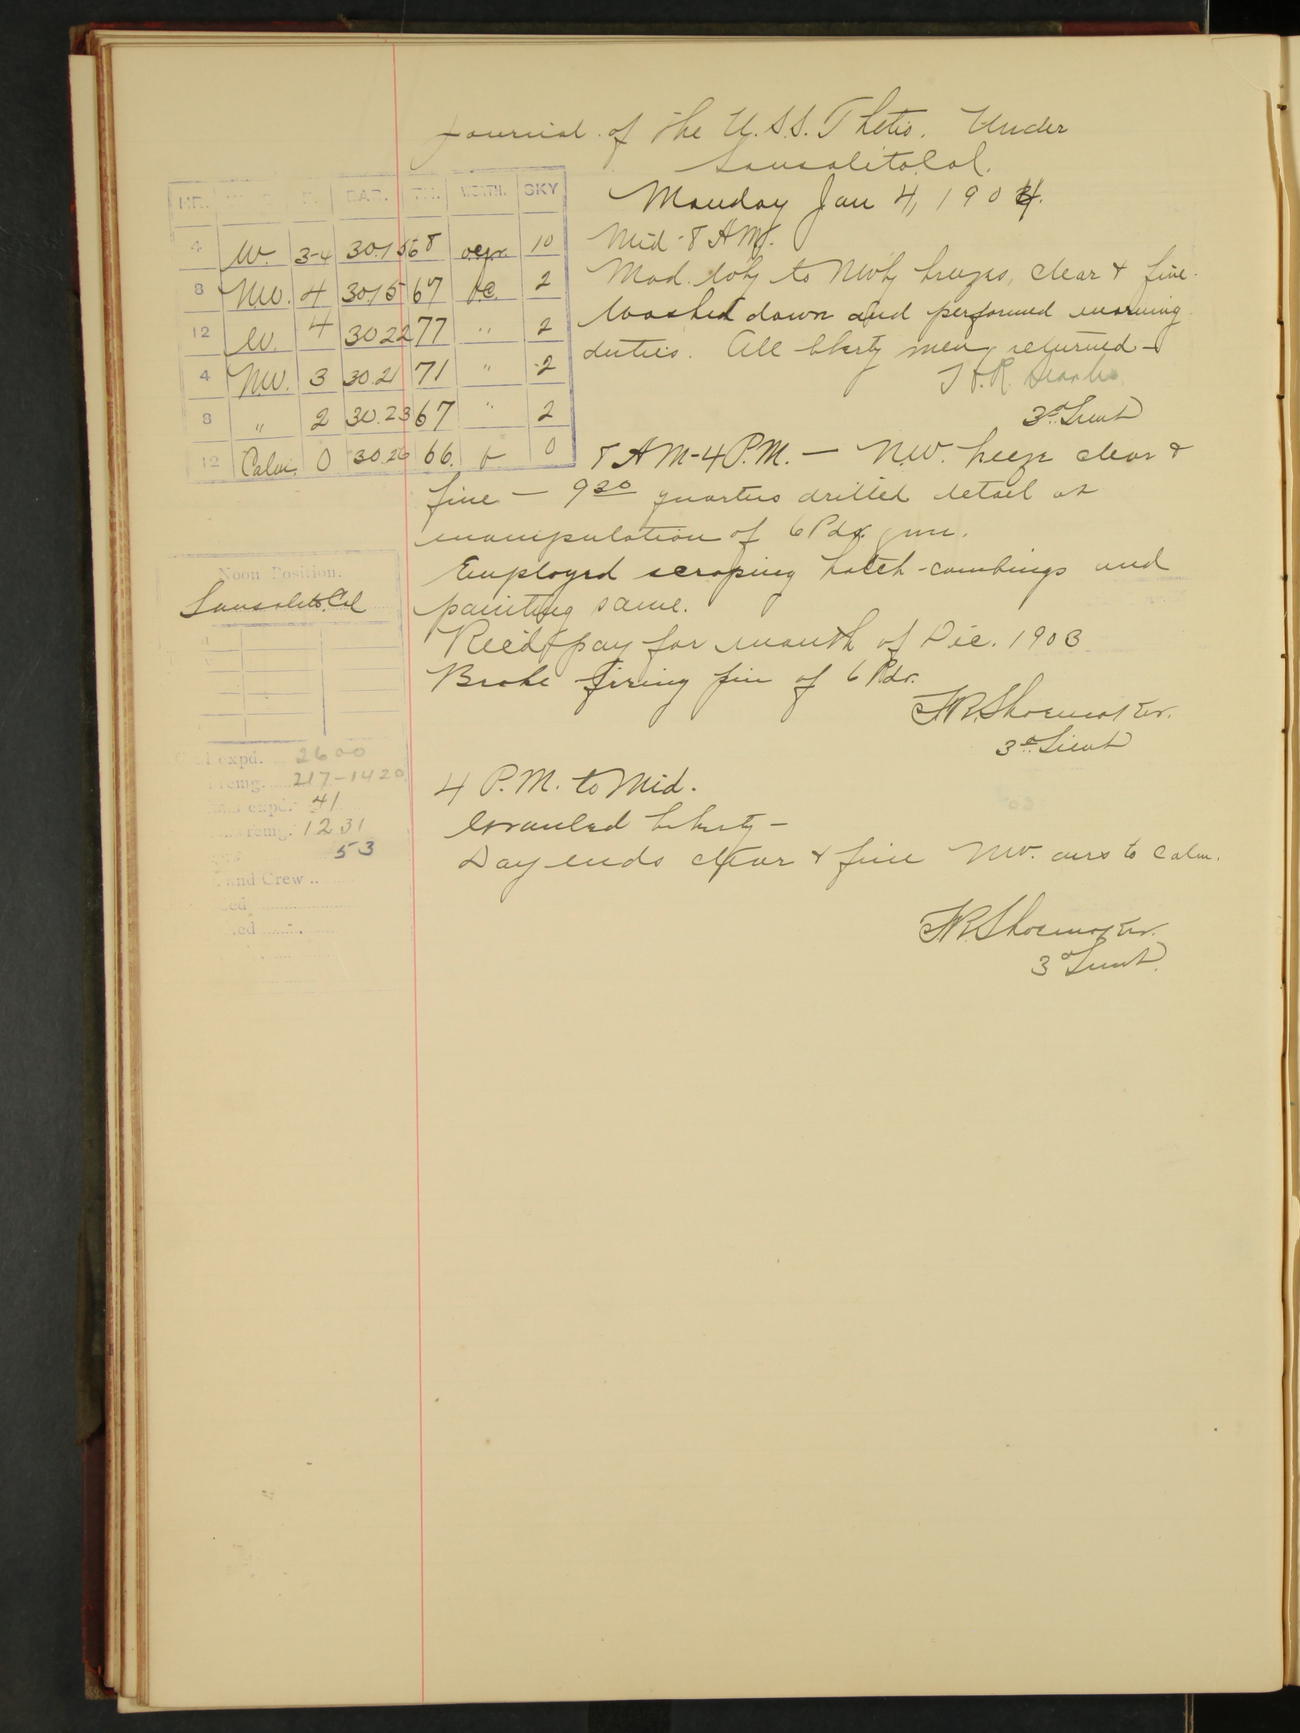 Journal of the U.S.S. Thetis. Under
Sausalito Cal.
Monday Jan 4, 1904.
HR. BAR. TH. WEATH. SKY
4 W. 3-4 30.15 68 10
8 NW. 4 30.15 67 bc. 2
12 W. 4 30.22 77 " 2
4 NW. 3 30.21 71 " 2
8 " 2 30.23 67 " 2
12 Calm 0 30.26 66. b 0
Mid - 8 AM.
Mod. Wly to NWly breezes, clear & fine.
Washed down and performed morning
duties. All liberty men returned -
3d Lieut
8 AM - 4 P.M. - N.W. breeze clear &
fine - 9 30 quarters drilled detail at
manipulation of 6 Pdr. gun.
Employed scraping hatch-combings and
painting same.
Rec'd pay for month of Dec. 1903
Broke firing pin of 6 Pdr.
F.R. Shoemaker.
3d Lieut
Noon Position.
Sausalito, Cal
expd. 2600
remg. 217-1420
expd. 41
remg. 1231
53
and Crew
4 P.M. to Mid.
Granted liberty -
Day ends clear & fine NW. airs to calm.
F.R. Shoemaker.
3d Lieut.